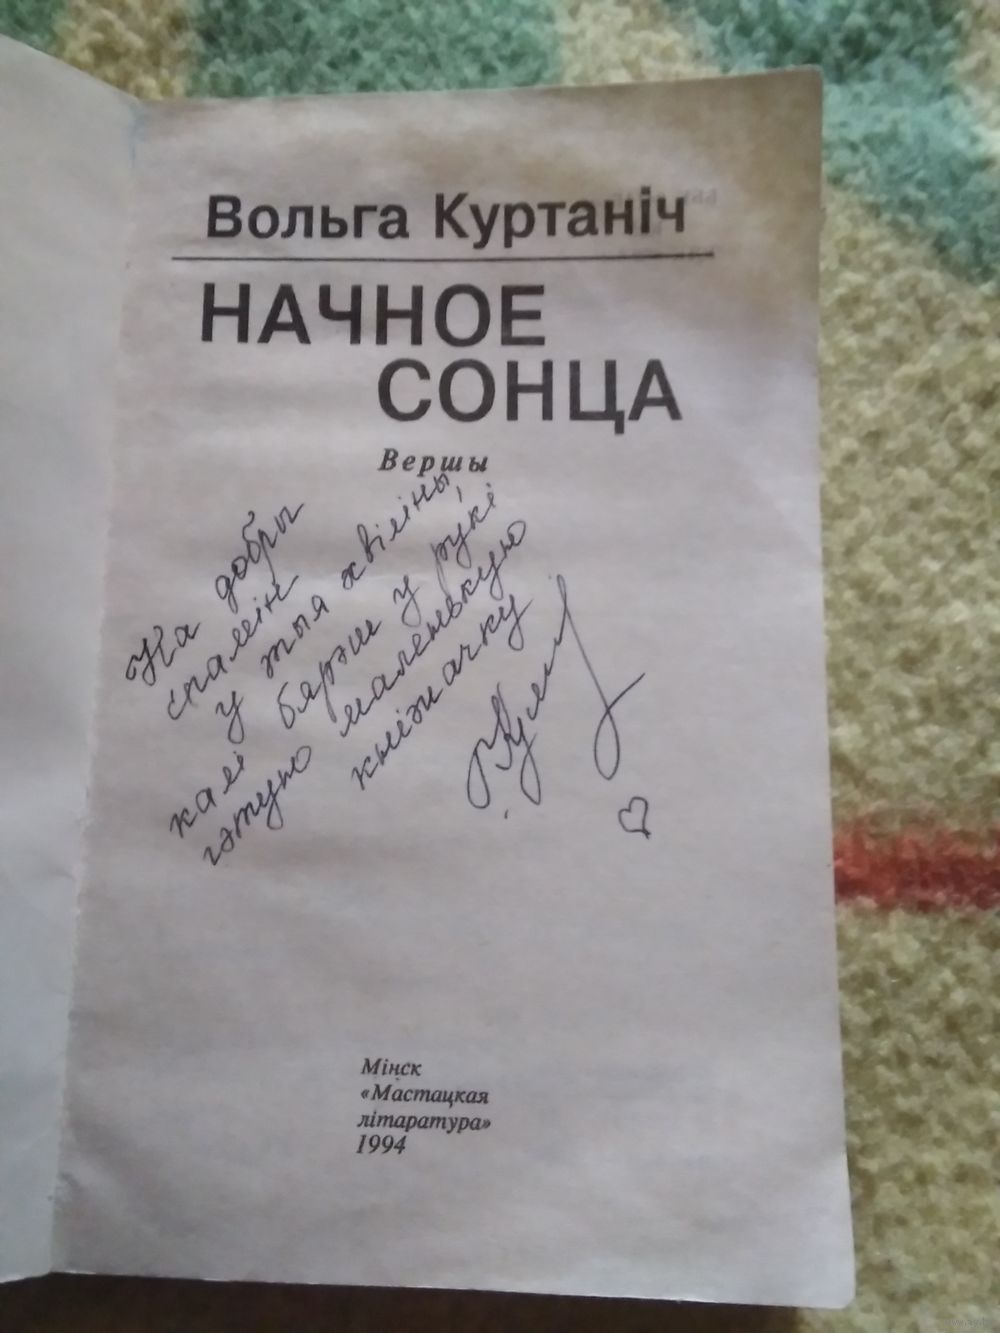 Вольга Куртаніч
НАЧНОЕ
СОНЦА
Вершы
На добры
спамін
у тыя хвіліны,
калі бярэш у рукі
гэтую маленькую
кніжачку
Мінск
«Мастацкая
літаратура»
1994